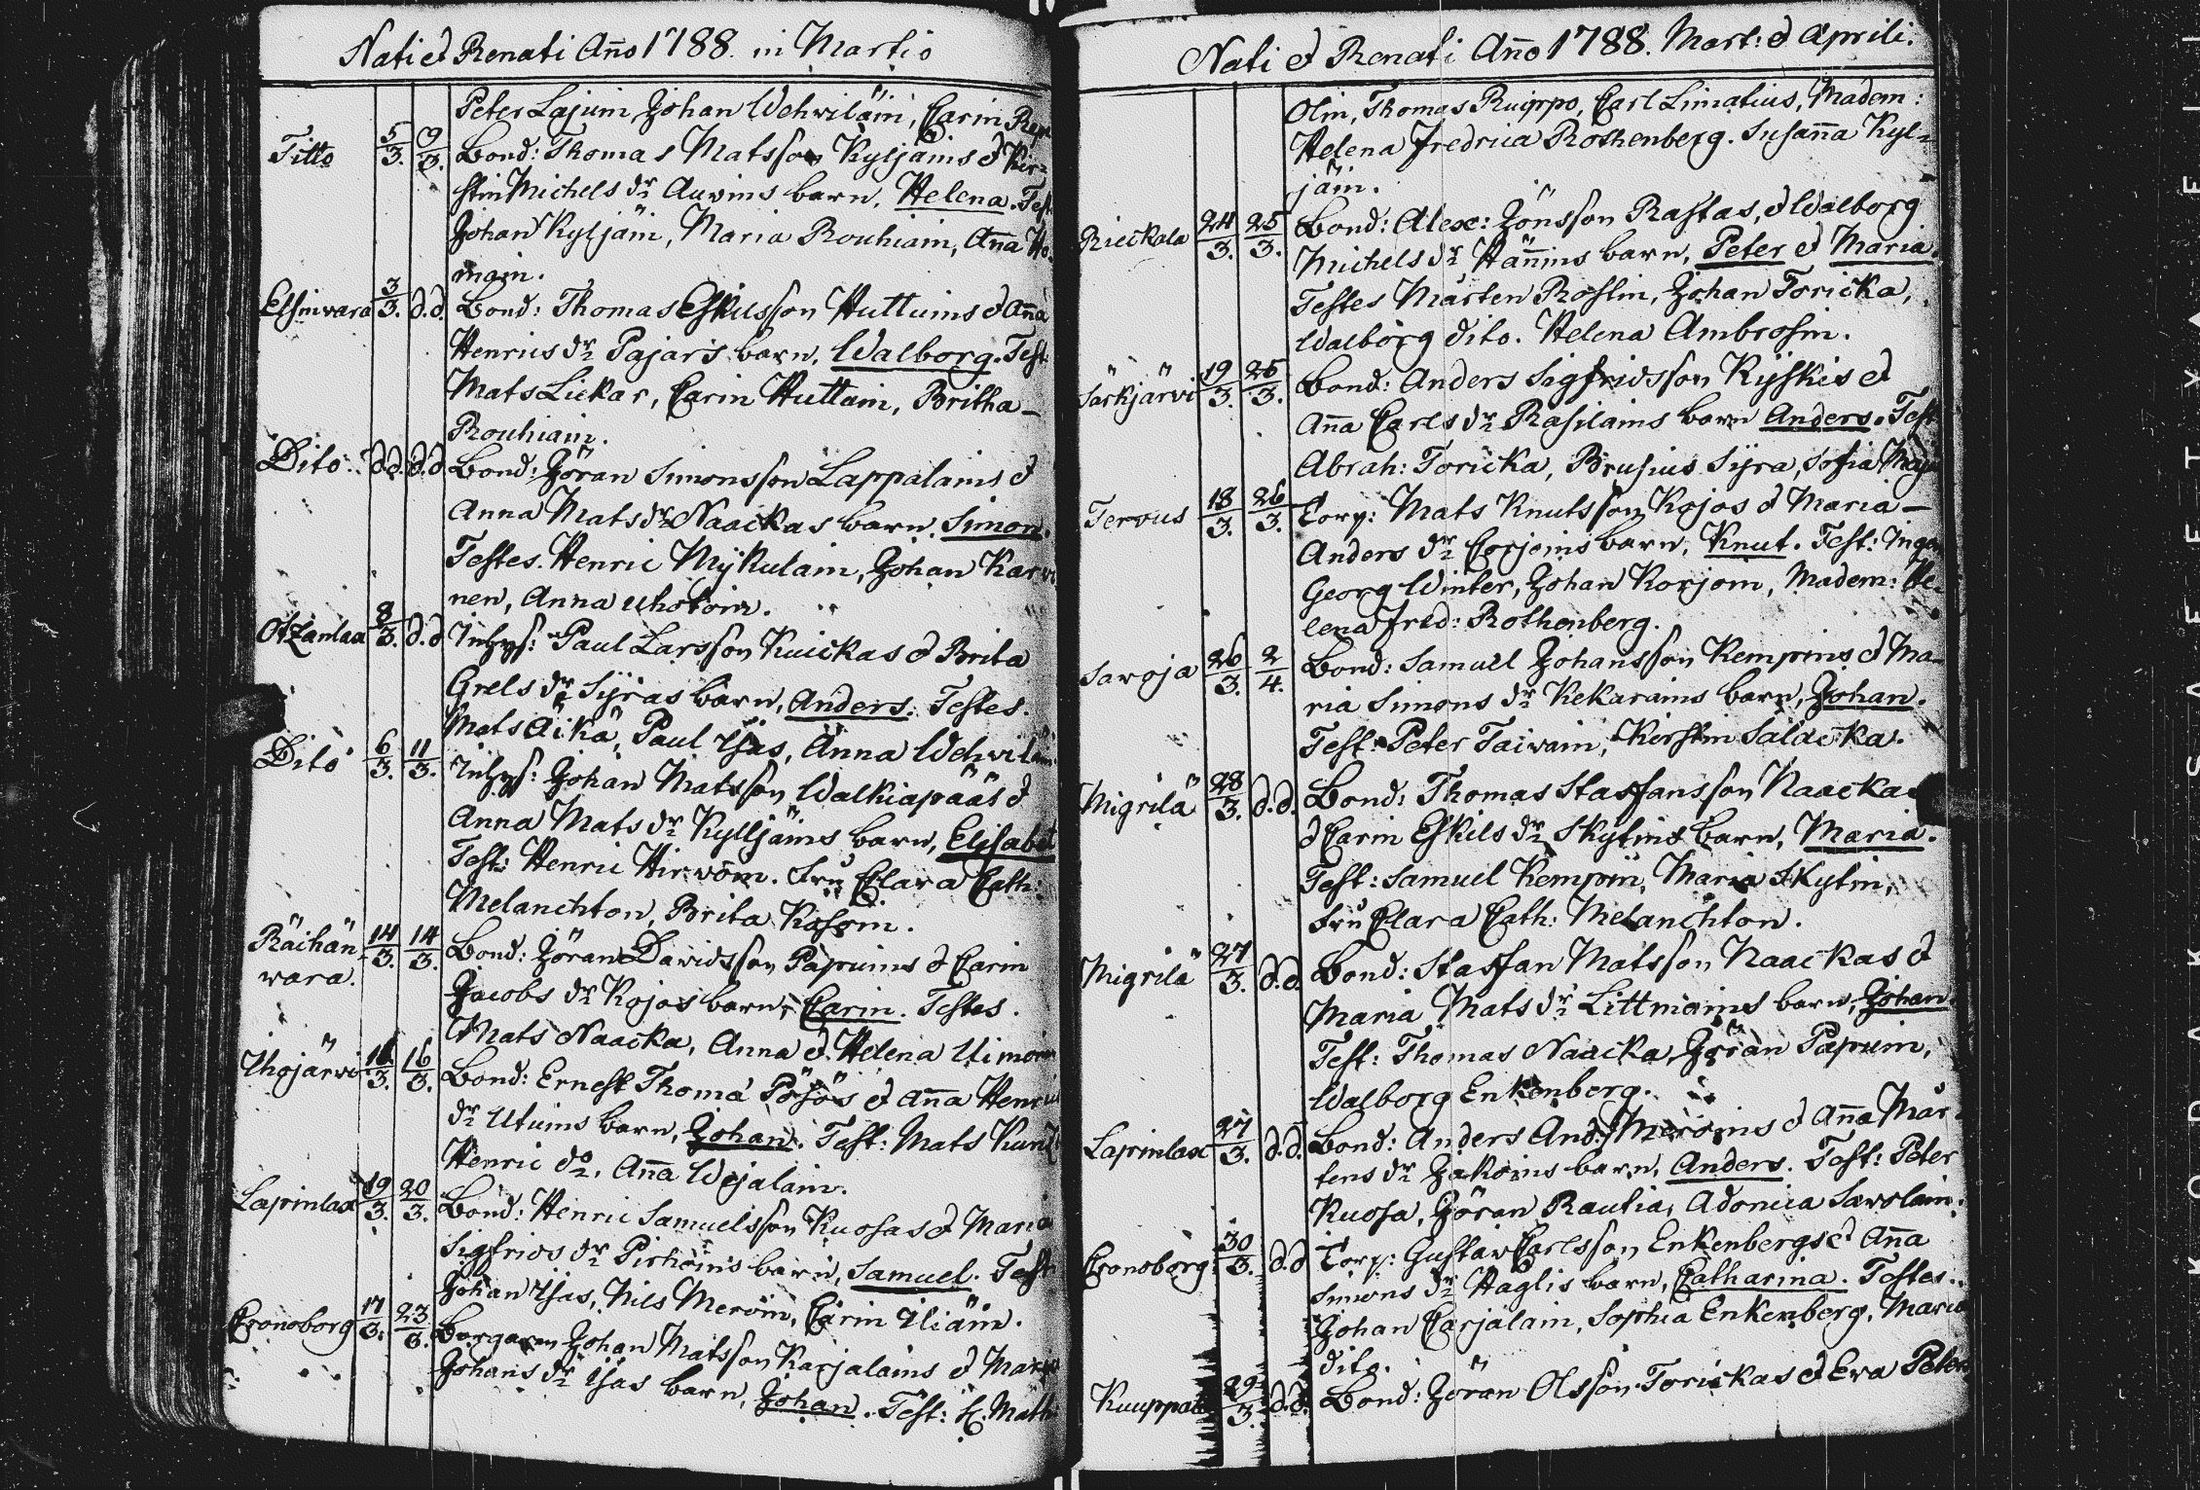 Nati et Renati Año 1788. in Martio
Peter Lajuin Johan Wehviläin, Carin
Titto 5/3. 9/3. Bond: Thomas Matsson Kyljäins & Ker-
stin Michels dr Auvins barn, Helena. Test.
Johan Kyljäin, Maria Rouhiain, Aña
main.
Elsinvara 3/3. d.d. Bond: Thomas Eskilsson Huttuins & Aña
Henrics dr Pajaris barn, Walborg. Test:
Mats Lickar, Carin Huttain, Britha-
Rouhiain.
Dito. d.d. d.d. Bond: Jöran Simonsson Lappalains &
Anna Mats dr Naackas barn. Simon.
Testes. Henric Mÿkulain, Johan Kar
nen, Anna Uhotoin.
Otzanlax 8/3. d.d Inhys: Paul Larsson Kuickas & Brita
Grels dr Sÿras barn, Anders. Testes.
Mats Äikä, Paul Ijas, Anna Wehviläin
Dito 6/3. 11/3. Inhys: Johan Matsson Walkiapääs &
Anna Mats dr Kylljäins barn, Elisabet
Test: Henric Hirvöin. Fru Clara Cath:
Melanchton, Brita Kosoin.
Räihän- 14/3. 14/3. Bond: Jöran Davidsson Papuins & Carin
wara. Jacobs dr Kojos barn, Carin. Testes.
Mats Naacka, Anna & Helena Uimoin
Ihojärvi 16/3. Bond: Ernest Thomæ Pösös & Aña Henrics
dr Utuins barn, Johan. Test: Mats
Henric do, Aña Wejalain.
Lapinlax 19/3. 20/3. Bond: Henric Samuelsson Kuosas & Maria
Sigfrids dr Pirhöins barn, Samuel. Test:
Johan Ijas, Nils Meröin, Carin Iliäin.
Cronoborg 17/3. 23/3. Borgaren Johan Matsson Karjalains & Maria
Johans dr Ijas barn, Johan. Test: H. Math
Nati et Renati Año 1788. Mart: & Aprili.
Olin, Thomas Ruippo, Carl Limatius, Madem:
Helena Fredrica Rothenberg. Susaña Kyl-
jäin.
Rieckala 24/3. 25/3. Bond: Alex: Jönsson Rastas, & Walborg
Michels dr Häñins barn, Peter & Maria.
Testes Mårten Roslin, Johan Toricka,
Walborg dito. Helena Ambrosin.
Särkjärvi 19/3. 25/3. Bond: Anders Sigfridsson Kÿskis &
Aña Carls dr Rasilains barn Anders. Test
Abrah: Toricka, Brusius Sÿra, Sofia
Tervus 18/3. 26/3. Torp: Mats Knutsson Kojos & Maria-
Anders dr Corjoins barn, Knut. Test:
Georg Winter, Johan Korjoin, Madem: He-
lena Fred: Rothenberg.
Saroja 26/3. 2/4. Bond: Samuel Johansson Kempins & Ma-
ria Simons dr Kekarains barn, Johan.
Test: Peter Taivain, Kerstin Salacka.
Migrilä 28/3. d.d. Bond: Thomas Staffansson Naackas
& Carin Eskils dr Skytins barn, Maria.
Test: Samuel Kempin, Maria Skytin,
Fru Clara Cath: Melanchton.
Migrilä 27/3. d.d. Bond: Staffan Matsson Naackas &
Maria Mats dr Littmains barn, Johan
Test: Thomas Naacka, Jöran Papuin,
Walborg Enkenberg.
Lapinlax 27/3. d.d. Bond: Anders And: Meröins & Aña Mår-
tens dr Jakoins barn, Anders. Test: Peter
Kuosa, Jöran Rautia, Adonica Savolain.
Cronoborg 30/3. d.d Torp: Gustaw Carlsson Enkenbergs & Aña
Simons dr Haglis barn, Catharina. Testes.
Johan Carjalain, Sophia Enkenberg, Maria
dito.
29/3. d.d. Bond: Jöran Olsson Torickas & Eva Peters
KODAK SAFETY